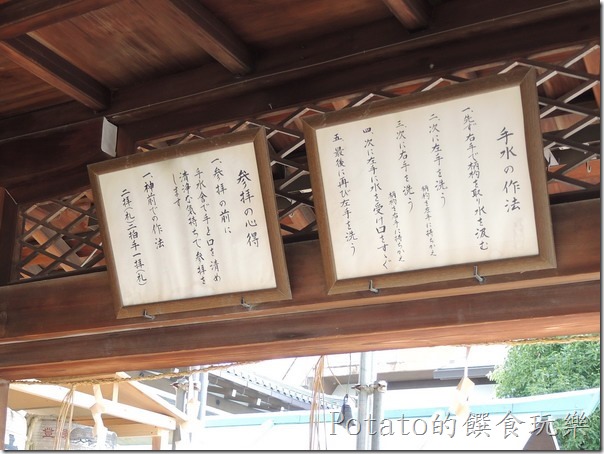 手水の作法
一、先づ右手で柄杓を取り水を汲む
二、次に左手を洗う
柄杓を左手に持ちかえ
三、次に右手を洗う
柄杓を右手に持ちかえ
四、次に左手に水を受け口をすゝぐ
五、最後に再び左手を洗う
参拝の心得
一、参拝の前に
手水舎で手と口を清め
清浄な気持ちで参拝を
します
一、神前での作法
二拝(礼)二拍手一拝(礼)
Potato的饌食玩樂